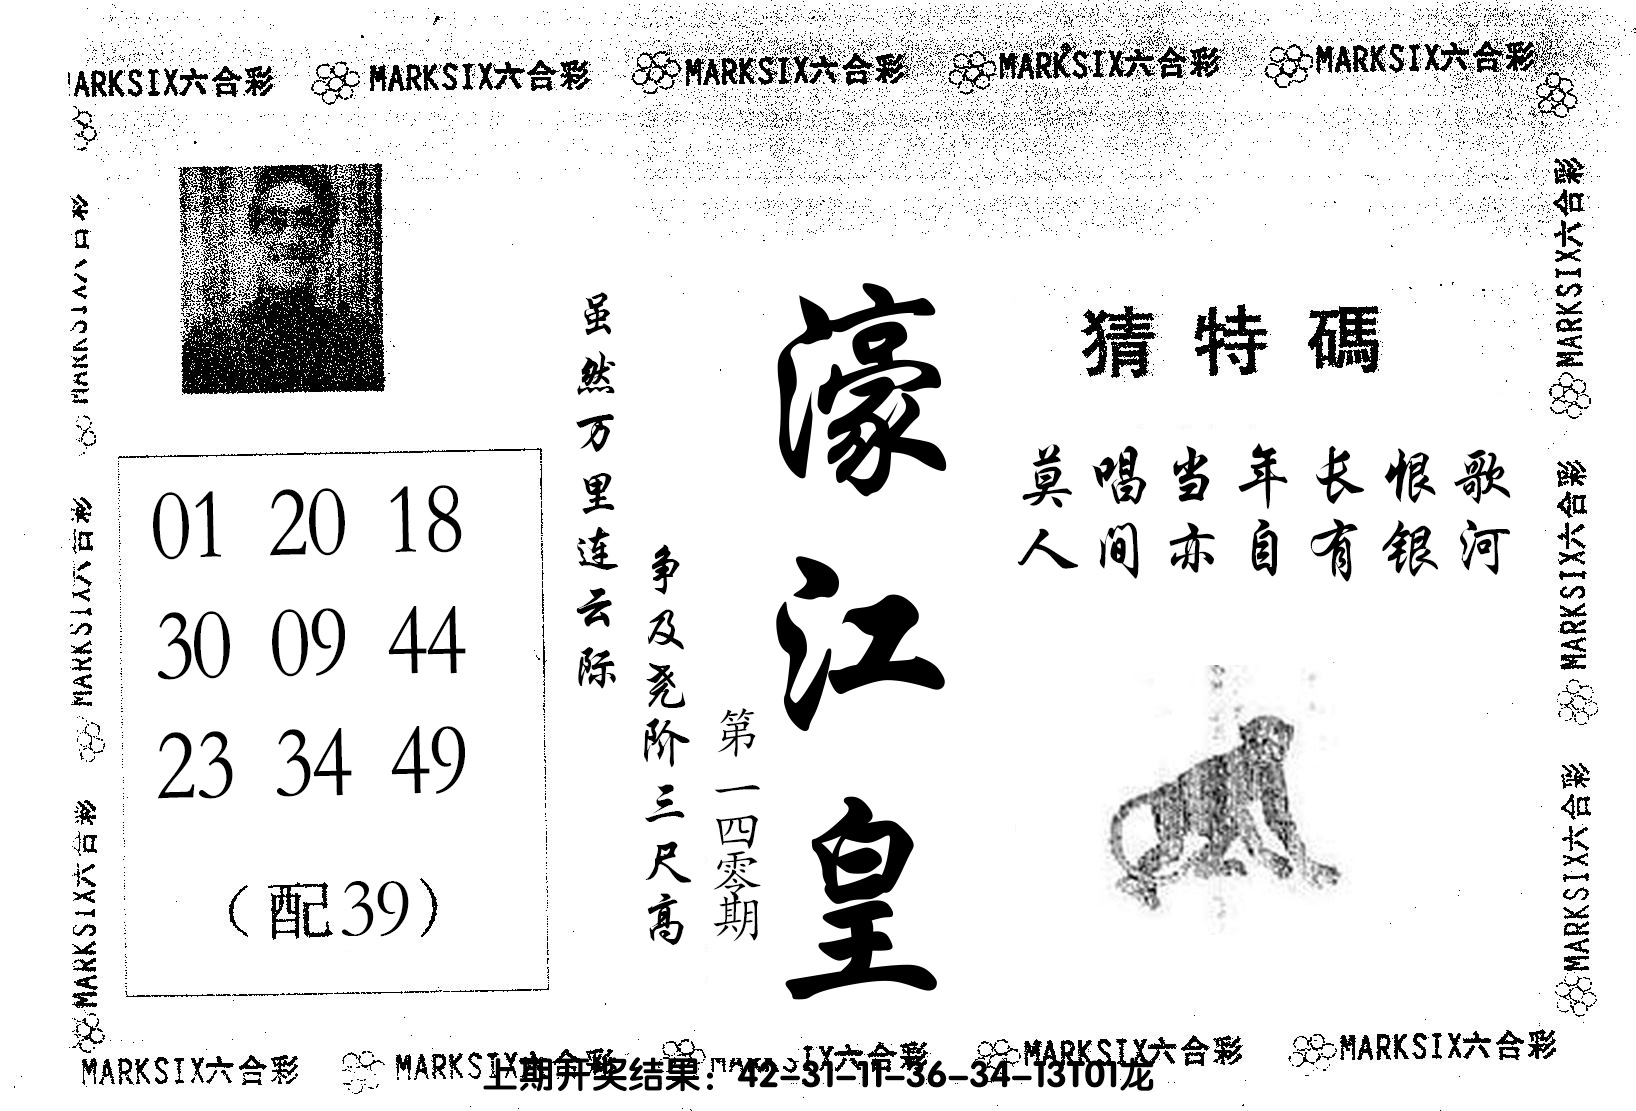 MARKSIX六合彩 MARKSIX六合彩 MARKSIX六合彩 MARKSIX六合彩 MARKSIX六合彩
MARKSIX六合彩
MARKSIX六合彩
MARKSIX六合彩
01 20 18
30 09 44
23 34 49
（配39）
虽然万里连云际
争及尧阶三尺高
第一四零期
濠江皇
猜特碼
莫唱当年长恨歌
人间亦自有银河
MARKSIX六合彩
MARKSIX六合彩
MARKSIX六合彩
MARKSIX六合彩 MARKSIX六合彩 MARKSIX六合彩 MARKSIX六合彩 MARKSIX六合彩
上期开奖结果：42-31-11-36-34-13T01龙